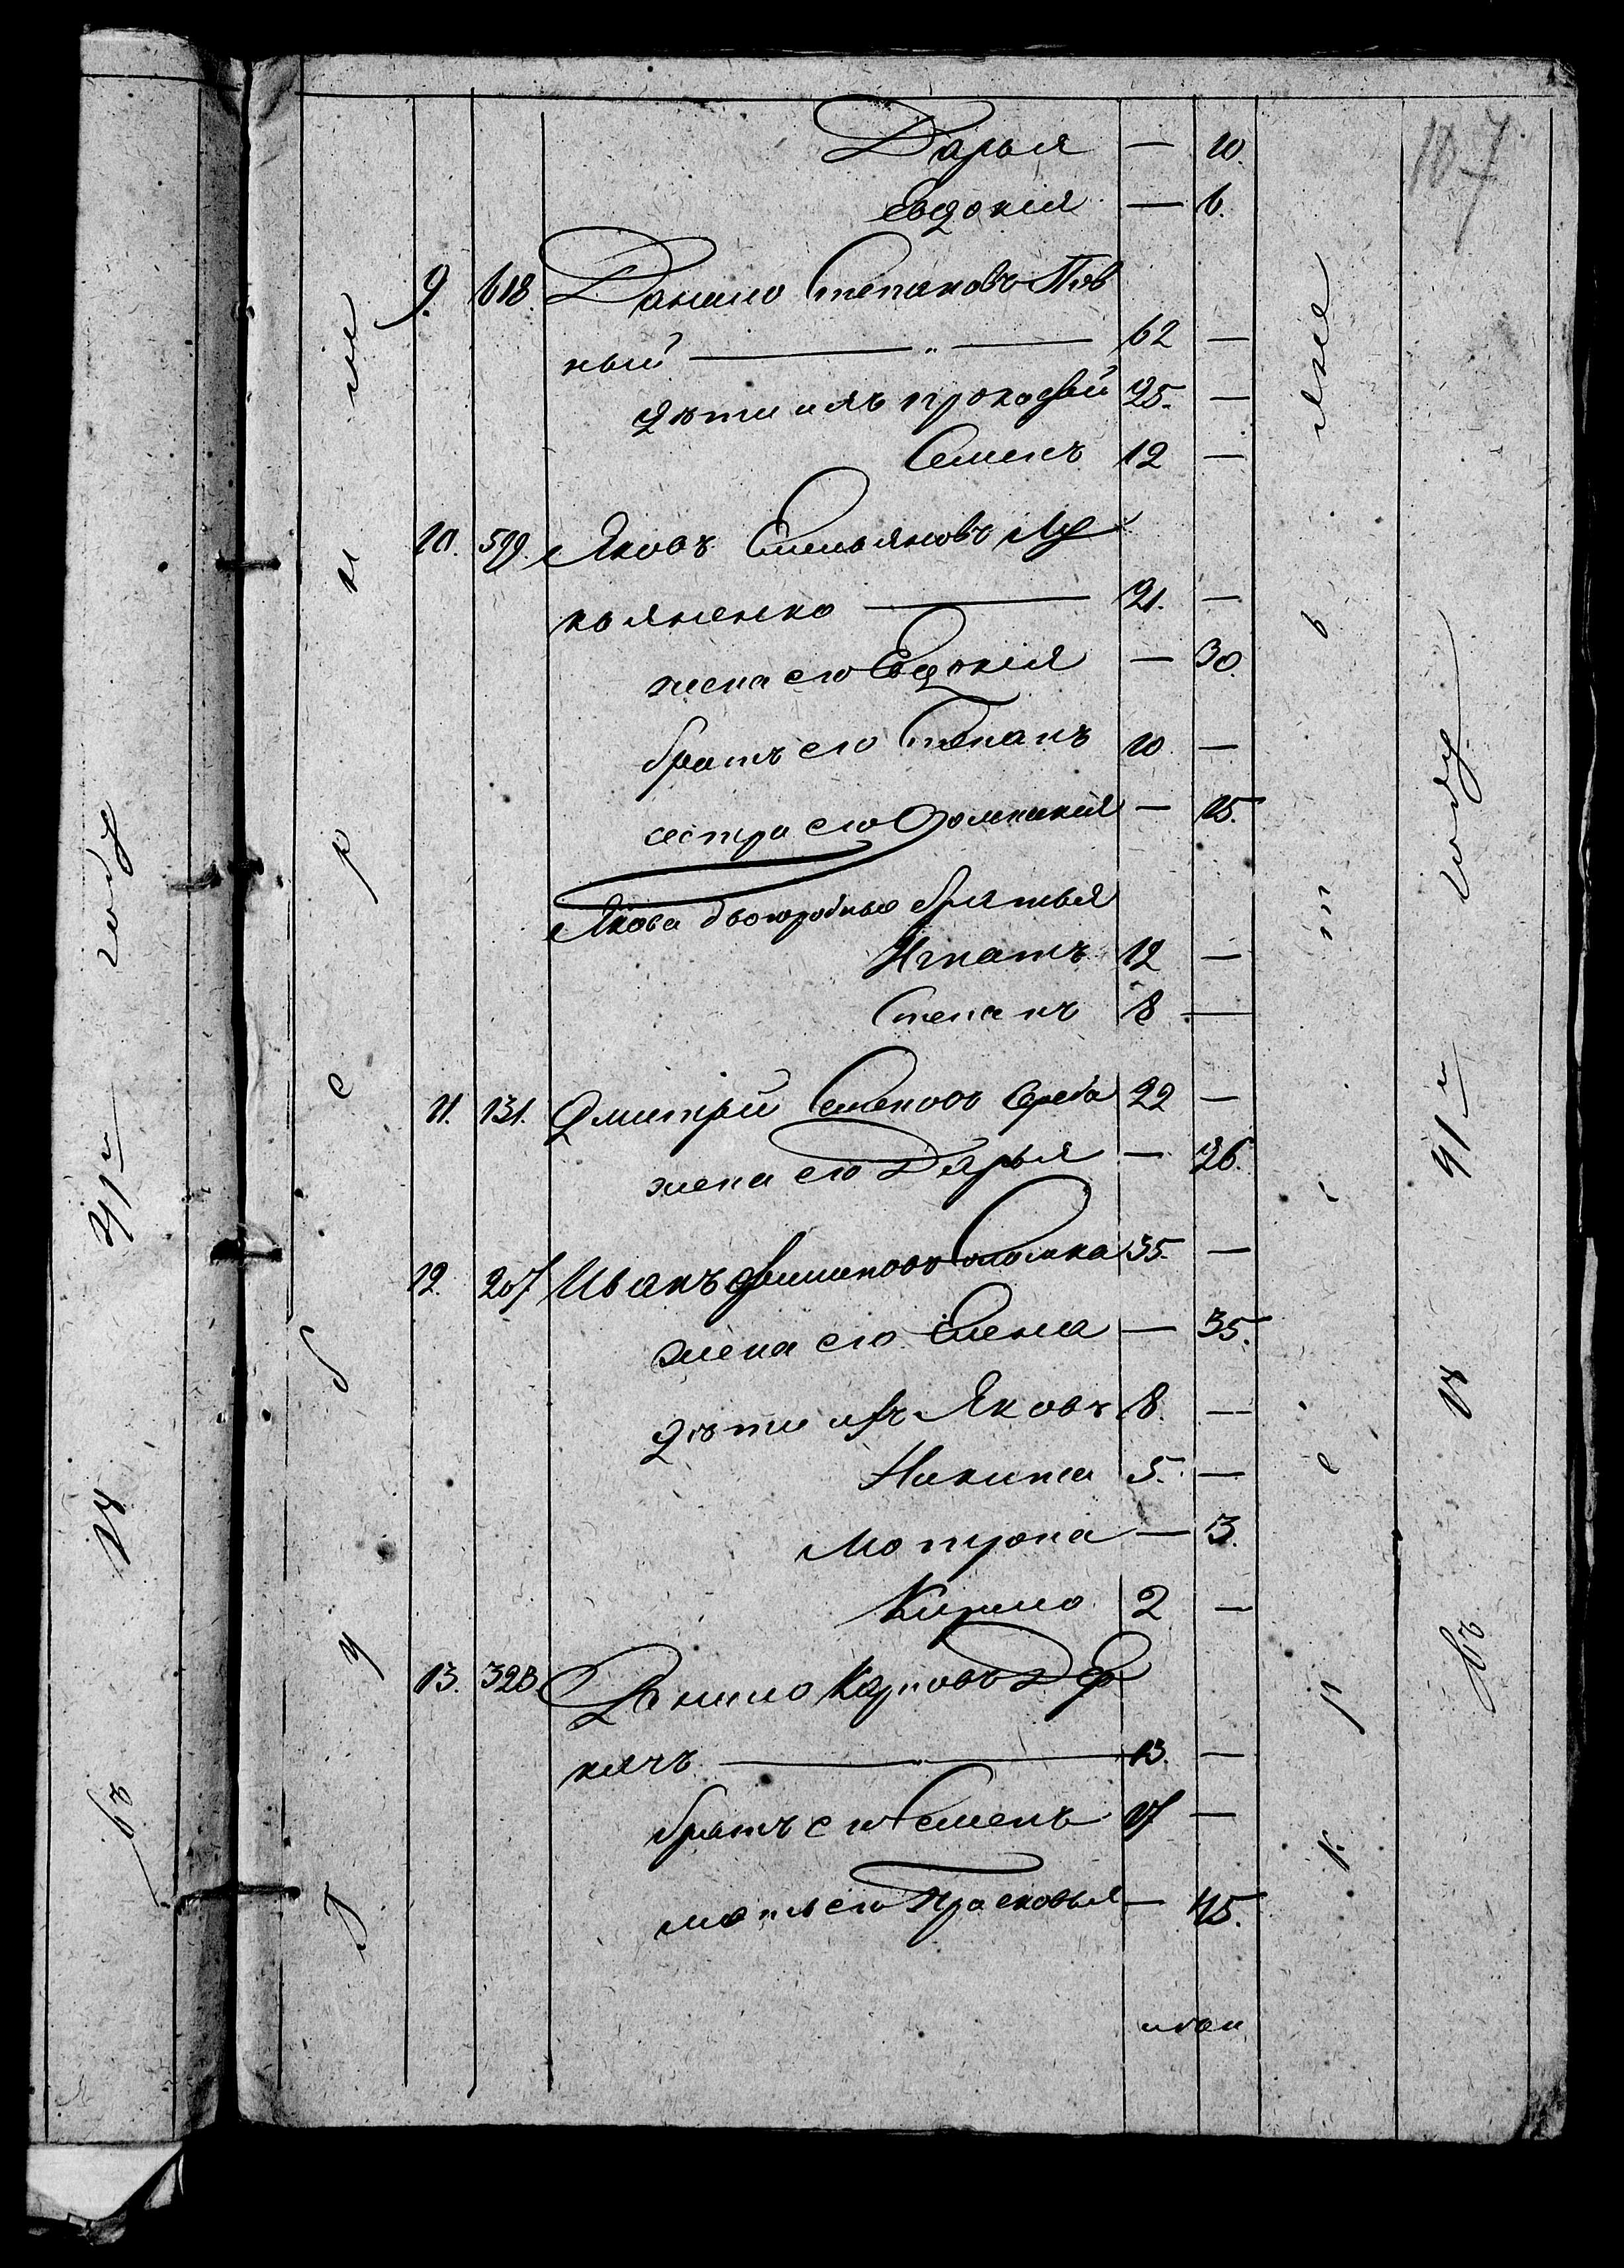 107
Дарья — 10.
Евдокія — 6.
9. 618. Данило Степановъ Пив
ный — „ — 62 —
дѣти ихъ Прокофій 25. —
Семенъ 12 —
10. 599. Яковъ Емельяновъ Лу
кьяненко — 21. —
жена его Евдокія — 30.
братъ его Степанъ 10 —
сестра его Домникія — 15.
Якова двоюродные братья
Игнатъ 12 —
Степанъ 8 —
11. 131. Дмитрий Семеновъ Середа 22 —
жена его Дарья — 26.
12. 207 Иванъ 35. —
жена его Елена — 35.
дѣти ихъ Яковъ 8. —
Никита 5. —
Мотрона — 3.
Кирило 2 —
13. 328 Данило Карповъ Де
кячъ — 13. —
братъ его Семенъ 17 —
мать его Прасковья — 45.
Губерніи
крѣпостные
въ 18 41 м году
въ 18 41 м году